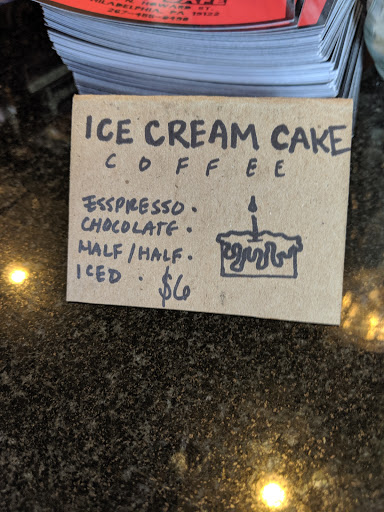 PHILADELPHIA, PA 19123
ICE CREAM CAKE
COFFEE
ESSPRESSO.
CHOCOLATE.
HALF/HALF.
ICED . $6